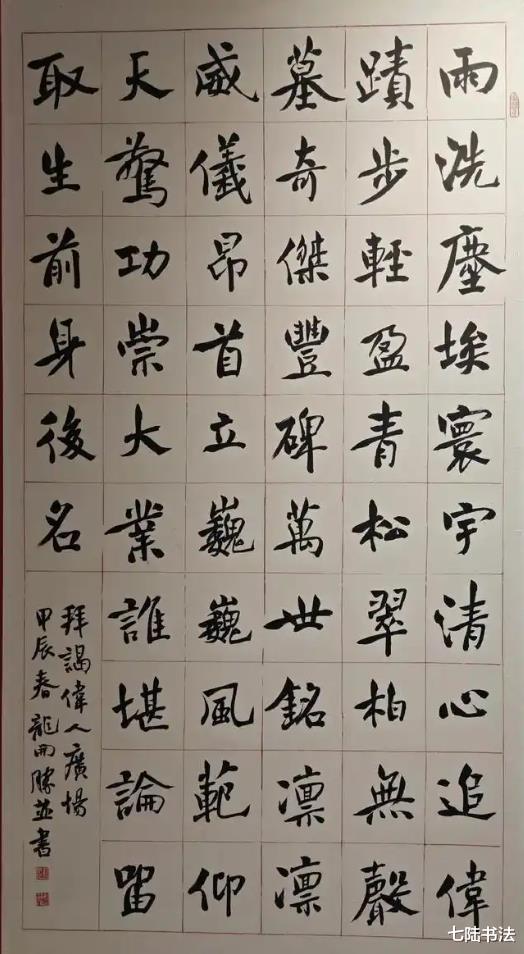 雨洗塵埃寰宇清心追偉
蹟步輕盈青松翠柏無聲
墓奇傑豐碑萬世銘凛凛
威儀昂首立巍巍風範仰
天驚功崇大業誰堪論留
取生前身後名
拜謁偉人廣場
甲辰春龍雨勝並書
七陆书法